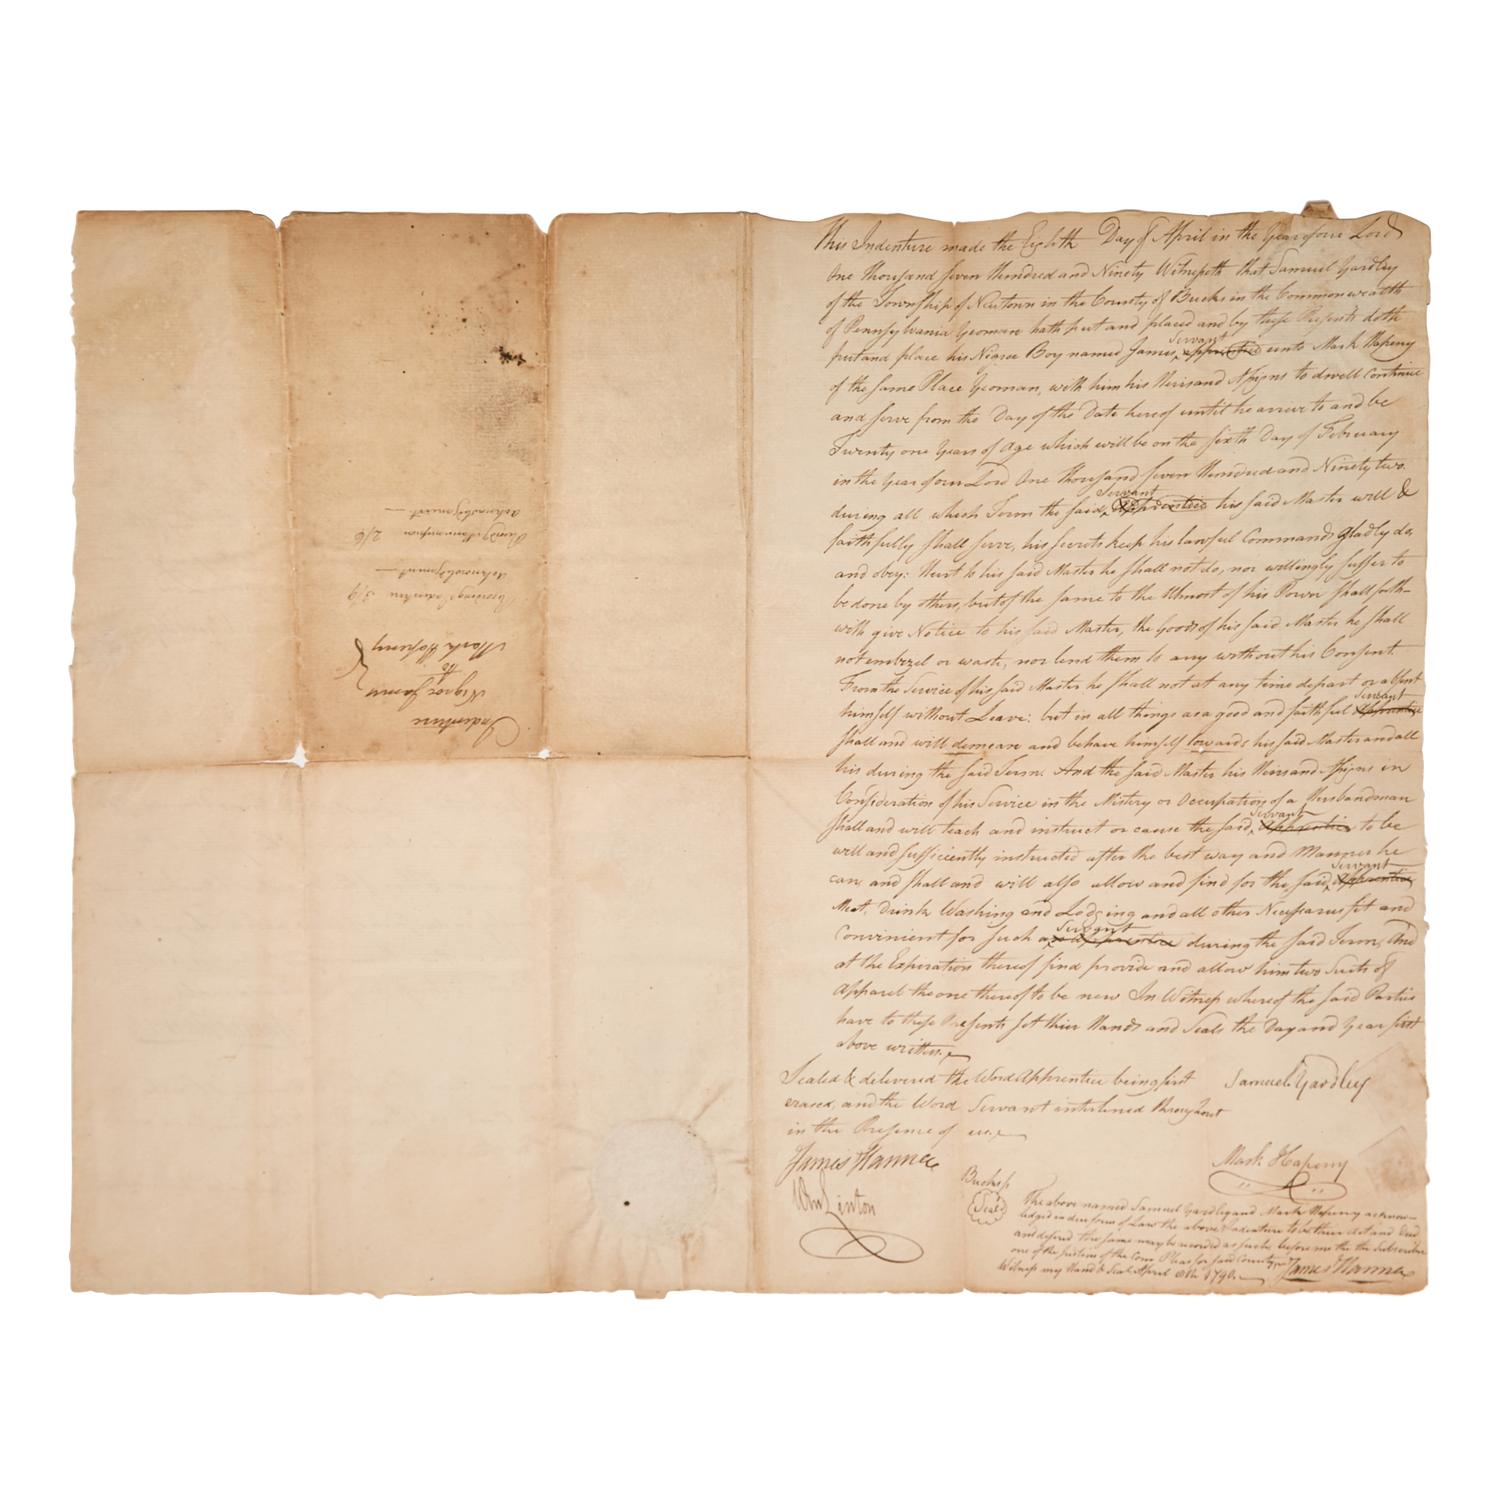 This Indenture made the Eighth Day of April in the Year of our Lord
One thousand seven Hundred and Ninety Witnesseth that Samuel Yardley
of the Township of Newtown in the County of Bucks in the Commonwealth
of Pennsylvania Yeoman hath put and placed and by these Presents doth
Servant
put and place his Negroe Boy named James, apprentice unto Mark Hapeny
of the same Place Yeoman, with him his Heirs and Assigns to dwell continue
and serve from the Day of the Date hereof until he arrive to and be
Twenty one Years of age which will be on the sixth Day of February
in the Year of our Lord One thousand seven Hundred and Ninety two.
Servant
during all which Term the said, Apprentice his said Master will &
faithfully shall serve, his secrets keep his lawful Commands gladly do,
and obey: Hurt to his said Master he shall not do, nor willingly suffer to
be done by others, but of the same to the Utmost of his Power shall forth-
with give Notice to his said Master, the Goods of his said Master he shall
not embezel or waste, nor lend them to any without his Consent.
From the Service of his said Master he shall not at any time depart or absent
Servant
himself without Leave: but in all things as a good and faithful Apprentice
shall and will demeane and behave himself towards his said Master and all
his during the said Term. And the said Master his Heirs and Assigns in
Consideration of his Service in the Mistery or Occupation of a Husbandman
Servant
shall and will teach and instruct or cause the said, Apprentice to be
well and sufficiently instructed after the best way and Manner he
Servant
can, and shall and will also allow and find for the said, Apprentice
Meat, Drink Washing and Lodging and all other Necessaries fit and
Servant
Convinient for such an apprentice during the said Term, And
at the Expiration thereof find provide and allow him two Suits of
Apparel the one thereof to be new In Witness whereof the said Parties
have to these Presents set thier Hands and Seals the Day and Year first
above written.
Sealed & delivered the Word Apprentice being first
erased, and the Word Servant interlined throughout
in the Presence of us.
Samuel Yardley
James Hanna
Wm Linton
Mark Hapeny
Bucks ss
Seal
The above named Samuel Yardley and Mark Hapeny acknow-
ledged in due form of Law the above Indenture to be their act and Deed
and desired the same may be recorded as such, before me the the Subscriber
one of the justices of the Com Pleas for said County,
Witness my Hand & Seal April 8th 1790.
James Hanna
Indenture
Negroe James
to
Mark Hapeny
Indenture 3/9
acknowledgment
2/6
acknowledgment